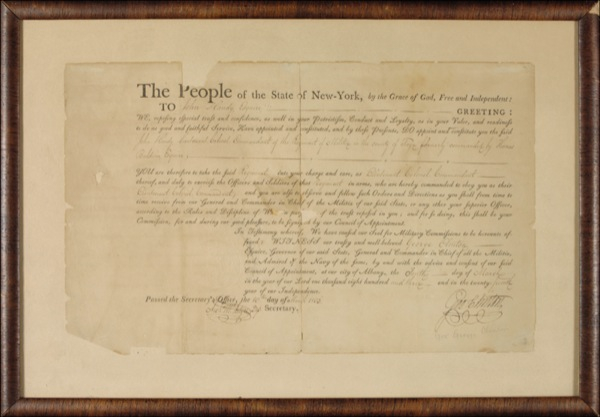 The People of the State of New-York, by the Grace of God, Free and Independent:
TO John Handy Esquire GREETING:
WE, reposing especial trust and confidence, as well in your Patriotism, Conduct and Loyalty, as in your Valor, and readiness
to do us good and faithful Service, HAVE appointed and constituted, and by these Presents, DO appoint and constitute you the said
John Handy Lieutenant Colonel Commandant of the Regiment of Militia in the county of formerly commanded by Thomas
Esquire
YOU are therefore to take the said Regiment into your charge and care, as Lieutenant Colonel Commandant
thereof, and duly to exercise the Officers and Soldiers of that Regiment in arms, who are hereby commanded to obey you as their
Lieutenant Colonel Commandant and you are also to observe and follow such Orders and Directions as you shall from time to
time receive from our General and Commander in Chief of the Militia of our said State, or any other your superior Officer,
according to the Rules and Discipline of War, in pursuance of the trust reposed in you; and for so doing, this shall be your
Commission, for and during our good pleasure, to be signified by our Council of Appointment.
In Testimony whereof, We have caused our Seal for Military Commissions to be hereunto af-
fixed: WITNESS our trusty and well-beloved George Clinton
Esquire, Governor of our said State, General and Commander in Chief of all the Militia,
and Admiral of the Navy of the same, by and with the advice and consent of our said
Council of Appointment, at our city of Albany, the day of March
in the year of our Lord one thousand eight hundred and three and in the twenty
year of our Independence.
Passed the Secretary's Office, the day of 1803
Secretary.